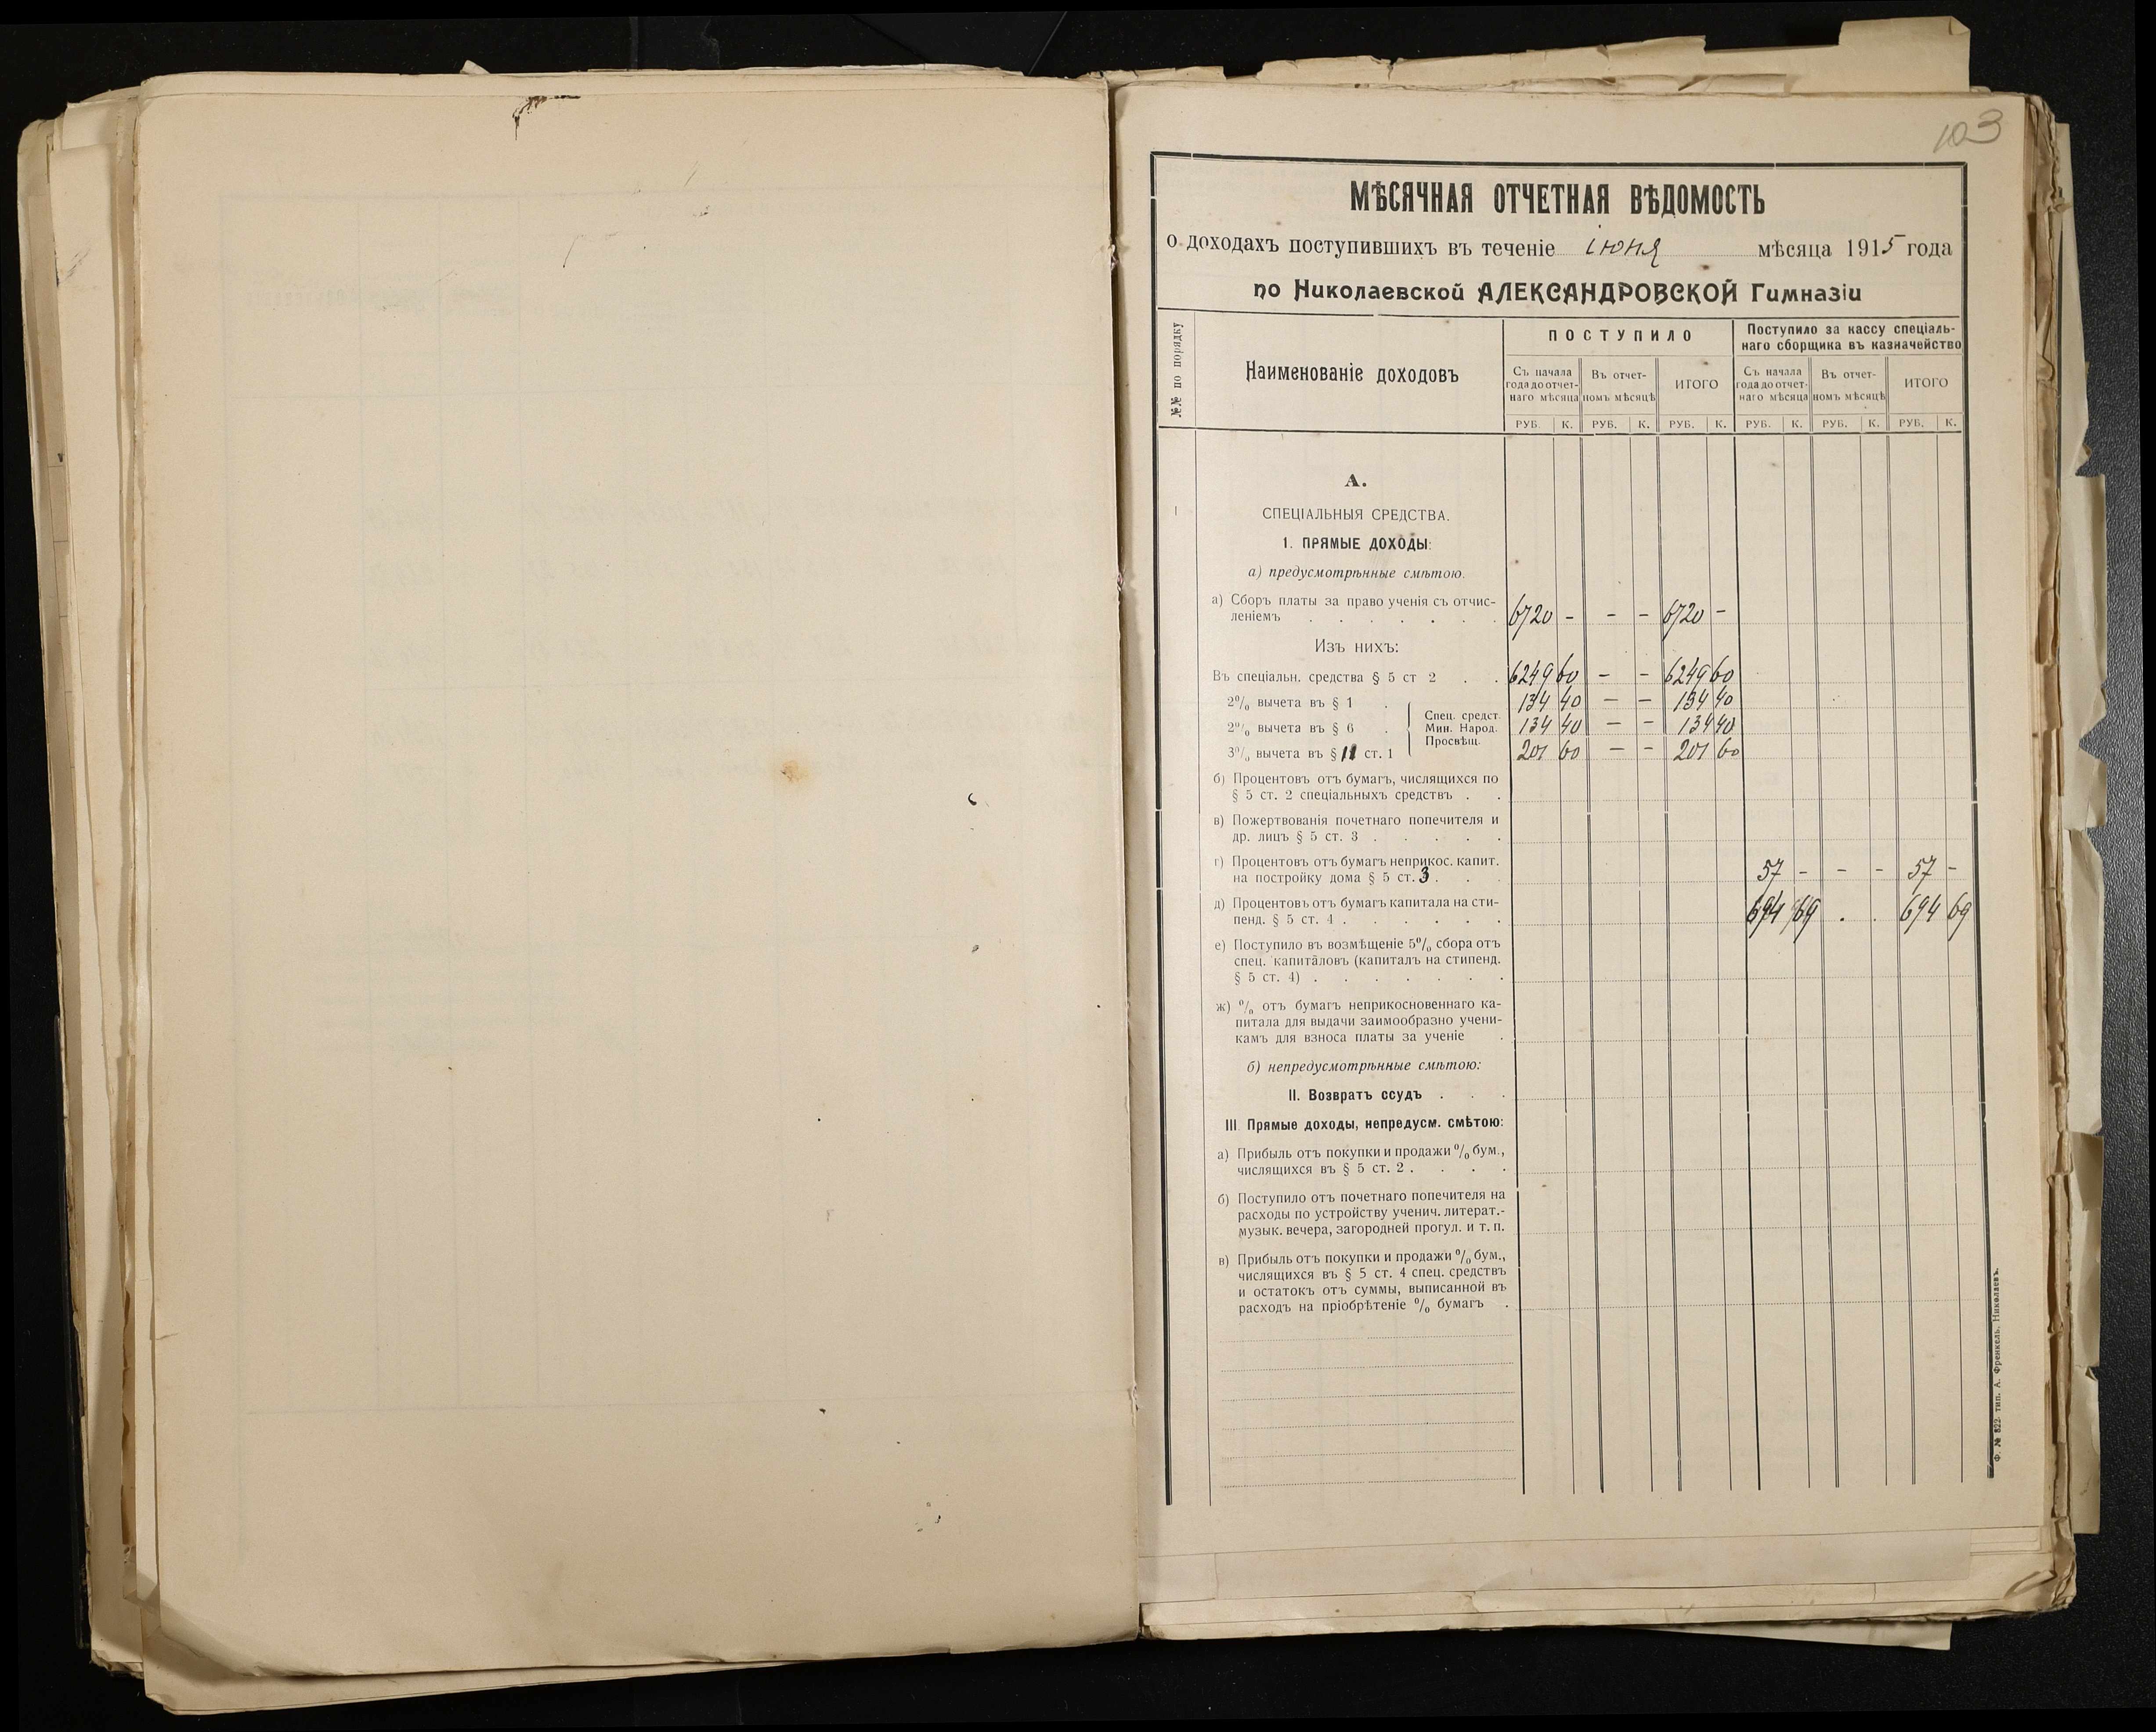 103
МѢСЯЧНАЯ ОТЧЕТНАЯ ВѢДОМОСТЬ
о доходахъ поступившихъ въ теченіе іюня мѣсяца 1915 года
по Николаевской АЛЕКСАНДРОВСКОЙ Гимназіи
№№ по порядку
Наименованіе доходовъ
ПОСТУПИЛО
Съ начала
года до отчет-
наго мѣсяца
Въ отчет-
номъ мѣсяцѣ
ИТОГО
Поступило за кассу спеціаль-
наго сборщика въ казначейство
Съ начала
года до отчет-
наго мѣсяца
Въ отчет-
номъ мѣсяцѣ
ИТОГО
РУБ. К. РУБ. К. РУБ. К. РУБ. К. РУБ. К. РУБ. К.
А.
СПЕЦІАЛЬНЫЯ СРЕДСТВА.
1. ПРЯМЫЕ ДОХОДЫ:
а) предусмотрѣнные смѣтою.
а) Сборъ платы за право ученія съ отчис-
леніемъ . . . . . . . 6720 - - - 6720 -
Изъ нихъ:
Въ спеціальн. средства § 5 ст 2 . . 6249 60 - - 6249 60
2% вычета въ § 1 . 134 40 - - 134 40
2% вычета въ § 6 . 134 40 - - 134 40
3% вычета въ § 11 ст. 1 201 60 - - 201 60
Спец. средст.
Мин. Народ.
Просвѣщ.
б) Процентовъ отъ бумагъ, числящихся по
§ 5 ст. 2 спеціальныхъ средствъ . .
в) Пожертвованія почетнаго попечителя и
др. лицъ § 5 ст. 3 . . . . .
г) Процентовъ отъ бумагъ неприкос. капит.
на постройку дома § 5 ст. 3 . . . 57 - - - 57 -
д) Процентовъ отъ бумагъ капитала на сти-
пенд. § 5 ст. 4 . . . . . . 694 69 . . 694 69
е) Поступило въ возмѣщеніе 5% сбора отъ
спец. капиталовъ (капиталъ на стипенд.
§ 5 ст. 4) . . . . . . .
ж) % отъ бумагъ неприкосновеннаго ка-
питала для выдачи заимообразно учени-
камъ для взноса платы за ученіе .
б) непредусмотрѣнные смѣтою:
II. Возвратъ ссудъ . . .
III. Прямые доходы, непредусм. смѣтою:
а) Прибыль отъ покупки и продажи % бум.,
числящихся въ § 5 ст. 2 . . . .
б) Поступило отъ почетнаго попечителя на
расходы по устройству ученич. литерат.-
музык. вечера, загородней прогул. и т. п.
в) Прибыль отъ покупки и продажи % бум.,
числящихся въ § 5 ст. 4 спец. средствъ
и остатокъ отъ суммы, выписанной въ
расходъ на пріобрѣтеніе % бумагъ .
Ф. № 822. тип. А. Френкель. Николаевъ.